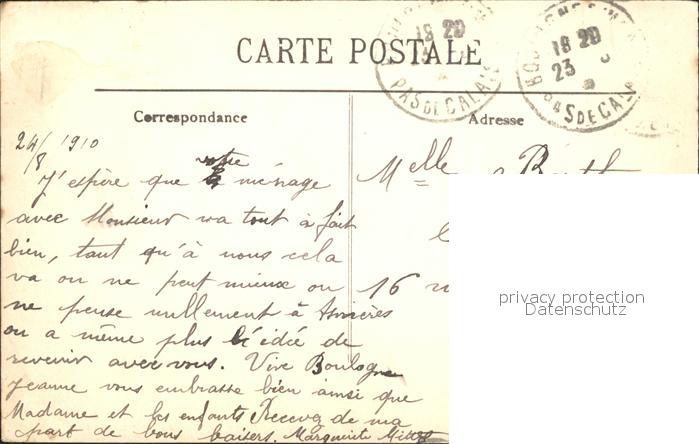 CARTE POSTALE
18 20
23
PAS DE CALAIS
18 20
23
PAS DE CALA
Correspondance
Adresse
24/8 1910
J'espère que votre ménage
avec Monsieur va tout à fait
bien, tant qu'à nous cela
va on ne peut mieux on
ne pense nullement à Asnières
on a même plus l'idée de
revenir avec vous. Vive Boulogne
Jeanne vous embrasse bien ainsi que
Madame et les enfants Recevez de ma
part de bons baisers. Marguerite
Melle
16
privacy protection
Datenschutz